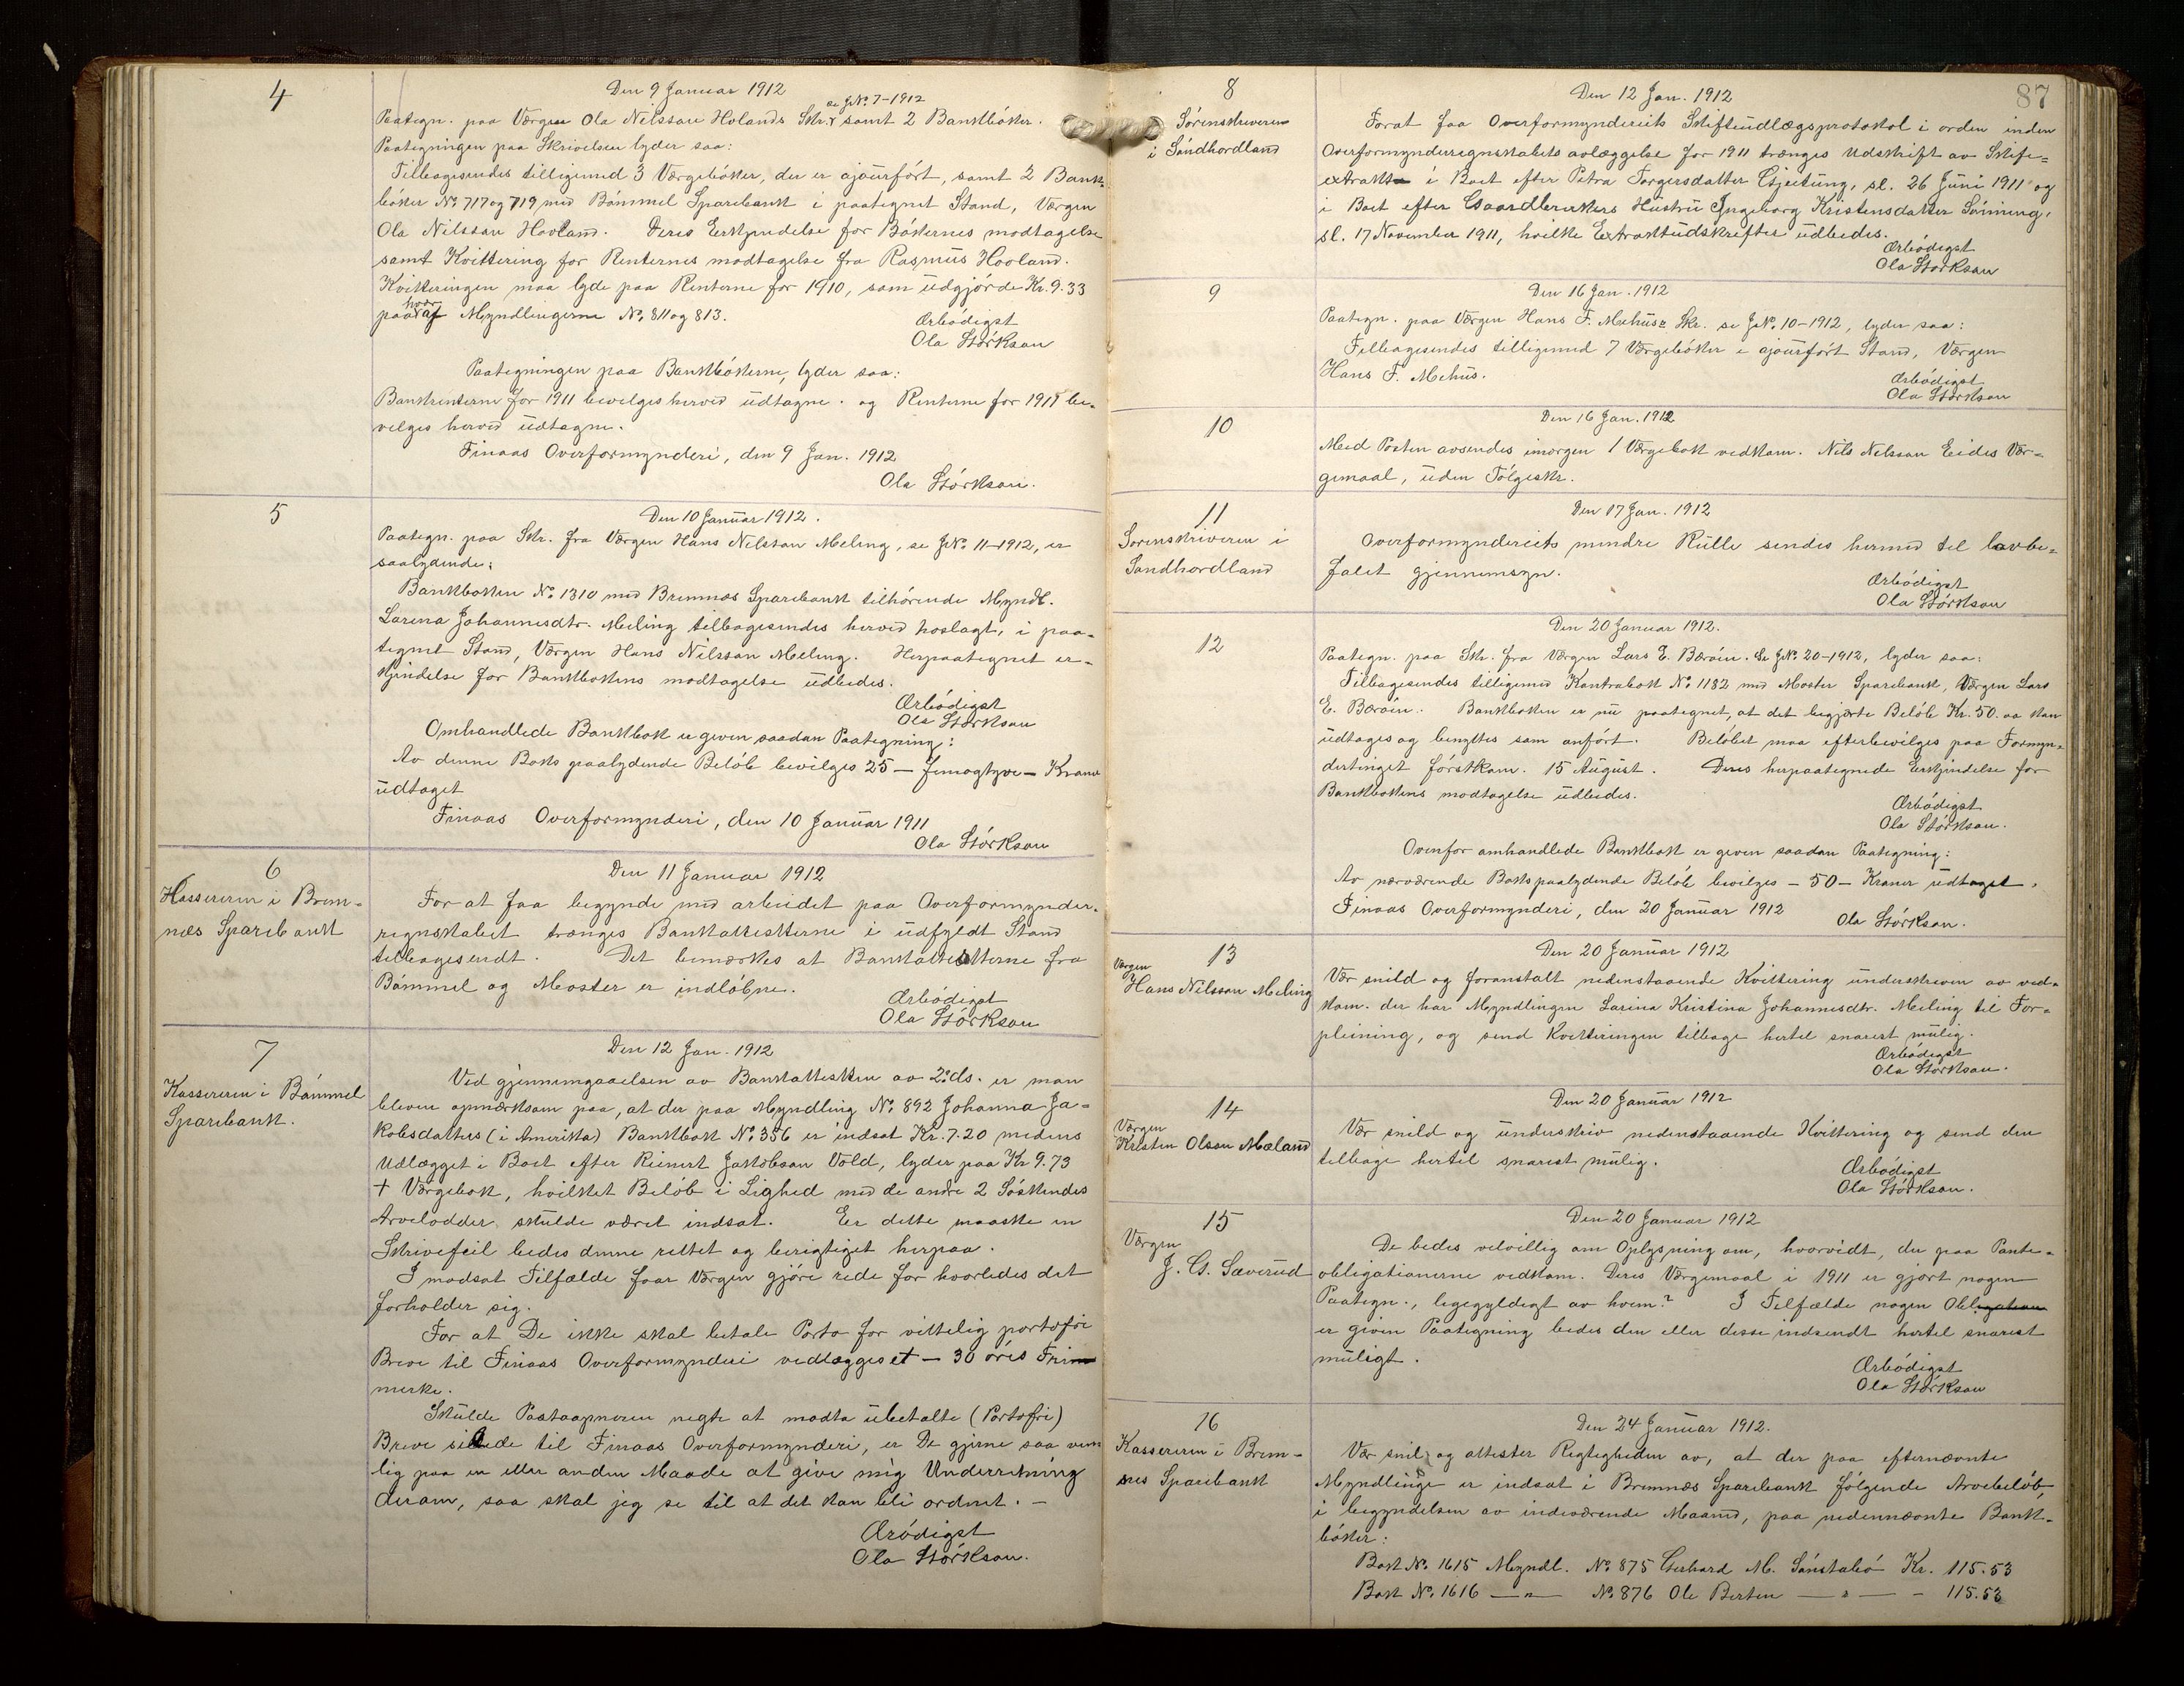 4
Den 9 Januar 1912
se J№ 7-1912
Paategn. paa Værgen Ola Nilsson Hovlands Skr. samt 2 Bankbóker.
Paategningen paa Skrivelsen lyder saa:
Tilbagesendes tilligemed 3 Værgebóker, der er ajourfórt, samt 2 Bank-
bóker № 717 og 719 med Bómmel Sparebank i paategnet Stand, Værgen
Ola Nilsson Hovland. Deres Erkjendelse for Bókernes modtagelse
samt Kvittering for Renternes modtagelse fra Rasmus Hovland.
Kvitteringen maa lyde paa Renterne for 1910, som udgjórde Kr. 9.33
paa hver af Myndlingerne №. 811 og 813.
Ærbódigst
Ola Stórkson
Paategningen paa Bankbókerne, lyder saa:
Bankrenterne for 1911 bevilges herved udtagne. og Renterne for 1911 be-
vilges herved udtagne.
Finaas Overformynderi, den 9 Jan. 1912
Ola Stórkson.
5
Den 10 Januar 1912.
Paategn. paa Skr. fra Værgen Hans Nilsson Meling, se J№. 11-1912, er
saalydende:
Bankboken №. 1310 med Bremnæs Sparebank tilhórende Myndl.
Larina Johannesdtr. Meling tilbagesendes herved hoslagt, i paa-
tegnet Stand, Værgen Hans Nilsson Meling. Herpaategnet er-
kjendelse for Bankbokens modtagelse udbedes.
Ærbódigst
Ola Stórkson
Omhandlede Bankbok er given saadan Paategning:
Av denne Boks paalydende Belób bevilges 25 - femogtyve - Kroner
udtaget
Finaas Overformynderi, den 10 Januar 1911
Ola Stórkson
6
Kassereren i Brem-
næs Sparebank
Den 11 Januar 1912
For at faa begynde med arbeidet paa Overformynder-
regnskabet trænges Bankattesterne i udfyldt Stand
tilbagesendt. Det bemærkes at Bankattesterne fra
Bómmel og Moster er indlóbne.
Ærbódigst
Ola Stórkson
7
Kassereren i Bómmel
Sparebank.
Den 12 Jan. 1912
Ved gjennemgaaelsen av Bankattesten av 2. ds. er man
bleven opmærksom paa, at der paa Myndling №. 892 Johanna Ja-
kobsdatters (i Amerika) Bankbok №. 356 er indsat Kr. 7.20 medens
Udlægget i Boet efter Rienert Jakobson Vold, lyder paa Kr 9.73
+ Værgebok, hvilket Belób i Lighed med de andre 2 Sóskendes
Arvelodder skulde været indsat. Er dette maaske en
Skrivefeil bedes denne rettet og berigtiget herpaa.
I modsat Tilfælde faar Værgen gjóre rede for hvorledes det
forholder sig.
For at De ikke skal betale Porto for vittelig portofri
Breve til Finaas Overformynderi vedlægges et - 30 óres Fri-
merke.
Skulde Postaapneren negte at modta ubetalte (Portofri)
Breve sendte til Finaas Overformynderi, er De gjerne saa ven
lig paa en eller anden Maade at give mig Underretning
derom, saa skal jeg se til at det kan bli ordnet. -
Æródigst
Ola Stórkson.
87
8
Sórenskriveren
i Sóndhordland
Den 12 Jan. 1912
Forat faa Overformynderiets Skifteudlægsprotokol i orden inden
Overformynderregnskabets avlæggelse for 1911 trænges Udskrift av Skifte-
extrakt i Boet efter Petra Torgersdatter Gjeitung, sl. 26 Juni 1911 og
i Boet efter Gaardbrukers Hustru Ingeborg Kristensdatter Sónning,
sl. 17 November 1911, hvilke Extraktudskrifter udbedes.
Ærbódigst
Ola Stórkson
9
Den 16 Jan. 1912
Paategn. paa Værgen Hans F. Mehus's Skr. se J№. 10-1912, lyder saa:
Tilbagesendes tilligemed 7 Værgebóker i ajourfórt Stand, Værgen
Hans F. Mehus.
Ærbódigst
Ola Stórkson
10
Den 16 Jan. 1912
Med Posten avsendes imorgen 1 Værgebok vedkom. Nils Nelson Eides Vær-
gemaal, uden Fólgeskr.
11
Sorenskriveren i
Sondhordland
Den 17 Jan. 1912
Overformynderiets mindre Rulle sendes hermed til lovbe-
falet gjennemsyn.
Ærbódigst
Ola Stórkson
12
Den 20 Januar 1912.
Paategn. paa Skr. fra Værgen Lars E. Bæróen. Se J№. 20-1912, lyder saa:
Tilbagesendes tilligemed Kontrabok №. 1182 med Moster Sparebank, Værgen Lars
E. Bæróen. Bankboken er nu paategnet, at det begjærte Belób Kr. 50.00 kan
udtages og benyttes som anfórt. Belóbet maa efterbevilges paa Formyn-
dertinget fórstkom. 15 August. Deres herpaategnede Erkjendelse for
Bankbokens modtagelse udbedes.
Ærbódigst
Ola Stórkson.
Ovenfor omhandlede Bankbok er given saadan Paategning:
Av nærværende Boks paalydende Belób bevilges - 50 - Kroner udtaget.
Finaas Overformynderi, den 20 Januar 1912
Ola Stórkson.
13
Værgen
Hans Nilsson Meling
Den 20 Januar 1912
Vær snild og foranstalt nedenstaaende Kvittering underskreven av ved-
kom. der har Myndlingen Larina Kristina Johannesdtr. Meling til For-
pleining, og send Kvitteringen tilbage hertil snarest mulig.
Ærbódigst
Ola Stórkson.
14
Værgen
Kristen Olson Mæland
Den 20 Januar 1912
Vær snild og underskriv nedenstaaende Kvittering og send den
tilbage hertil snarest mulig.
Ærbódigst
Ola Stórkson.
15
Værgen
J. G. Sæverud
Den 20 Januar 1912
De bedes velvillig om Oplysning om, hvorvidt, der paa Pante-
obligationerne vedkom. Deres Værgemaal i 1911 er gjort nogen
Paategn., ligegyldigt av hvem? I Tilfælde nogen Obligation
er given Paategning bedes den eller desse indsendt hertil snarest
muligt.
Ærbódigst
Ola Stórkson
16
Kassereren i Brem-
nes Sparebank
Den 24 Januar 1912.
Vær snil og attester Rigtigheden av, at der paa efternævnte
Myndlinge er indsat i Bremnæs Sparebank fólgende Arvebelób,
i begyndelsen av indeværende Maaned, paa nedennævnte Bank-
bóker:
Bok №. 1615 Myndl. №. 875 Gerhard M. Sónstabó Kr. 115.53
Bok №. 1616 —„— №. 876 Ole Berten —„— - 115.53